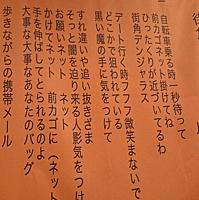 自転車乗る時一秒待って
前カゴネット掛けてね
ひったくりが近づいてるわ
街角デンジャラス
デート行く時フフフ微笑まないで
どこかで狙われている
黒い魔の手に気をつけて
すれ違いや追い抜きざま
そっと闇を迫り来る人影気をつけ
お願いネット　ネット
かけてネット　前カゴに（ネット
手を伸ばしてとられるのよ
大事な大事なあなたのバッグ
歩きながらの携帯メール